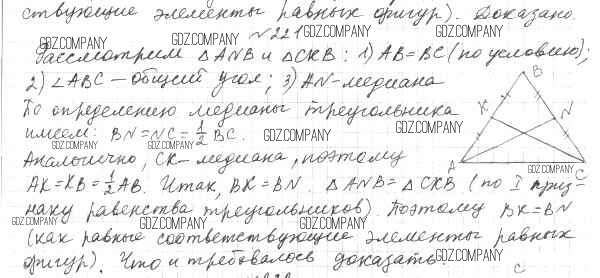 ствующие элементы равных фигур). Доказано.
GDZ.COMPANY GDZ.COMPANY GDZ.COMPANY
№221
Рассмотрим △ANB и △CKB: 1) AB=BC (по условию);
GDZ.COMPANY GDZ.COMPANY
2) ∠ABC – общий угол; 3) AN-медиана
По определению медианы треугольника
имеем: BN=NC=1/2 BC. GDZ.COMPANY GDZ.COMPANY
GDZ.COMPANY GDZ.COMPANY
Аналогично, CK – медиана, поэтому
AK=KB=1/2 AB. Итак, BK=BN. △ANB=△CKB (по I приз-
GDZ.COMPANY
наку равенства треугольников). Поэтому BK=BN
GDZ.COMPANY GDZ.COMPANY GDZ.COMPANY
(как равные соответствующие элементы равных
фигур). Что и требовалось доказать. GDZ.COMPANY
B
K
N
A
C
C